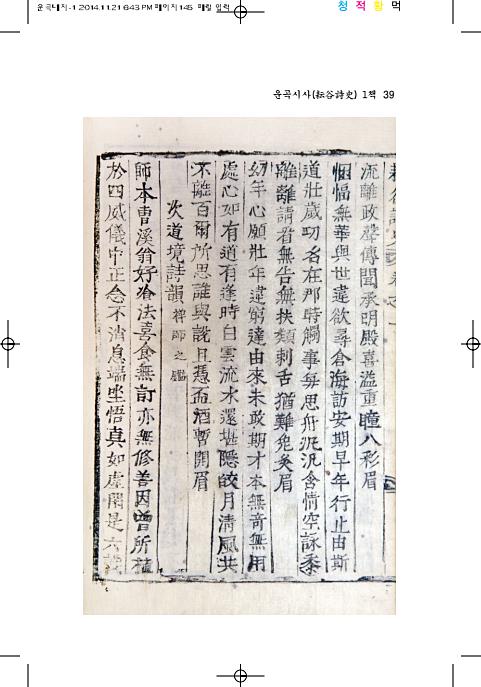 운곡내지-1 2014.11.21 6:43 PM 페이지145 매킬 일력
청 적 황 먹
운곡시사(耘谷詩史) 1책 39
流離政聲傳聞承明殿喜溢重瞳八彩眉
悃愊無華與世違欲尋倉海訪安期早年行止由斯
道壯歲功名在那時觸事每思舟汎汎含情空詠黍
離離請看無告無扶類刺舌猶難免矣眉
幼年心願壯年違窮達由來未敢期才本無奇無用
處心如有道有逢時白雲流水還堪隱皎月清風共
不離百爾所思誰與說且憑盃酒暫開眉
次道境詩韻 禪師之
師本曹溪翁好飡法喜食無言亦無修善因曾所植
於四威儀中正念不消息端坐悟眞如虛閑是六